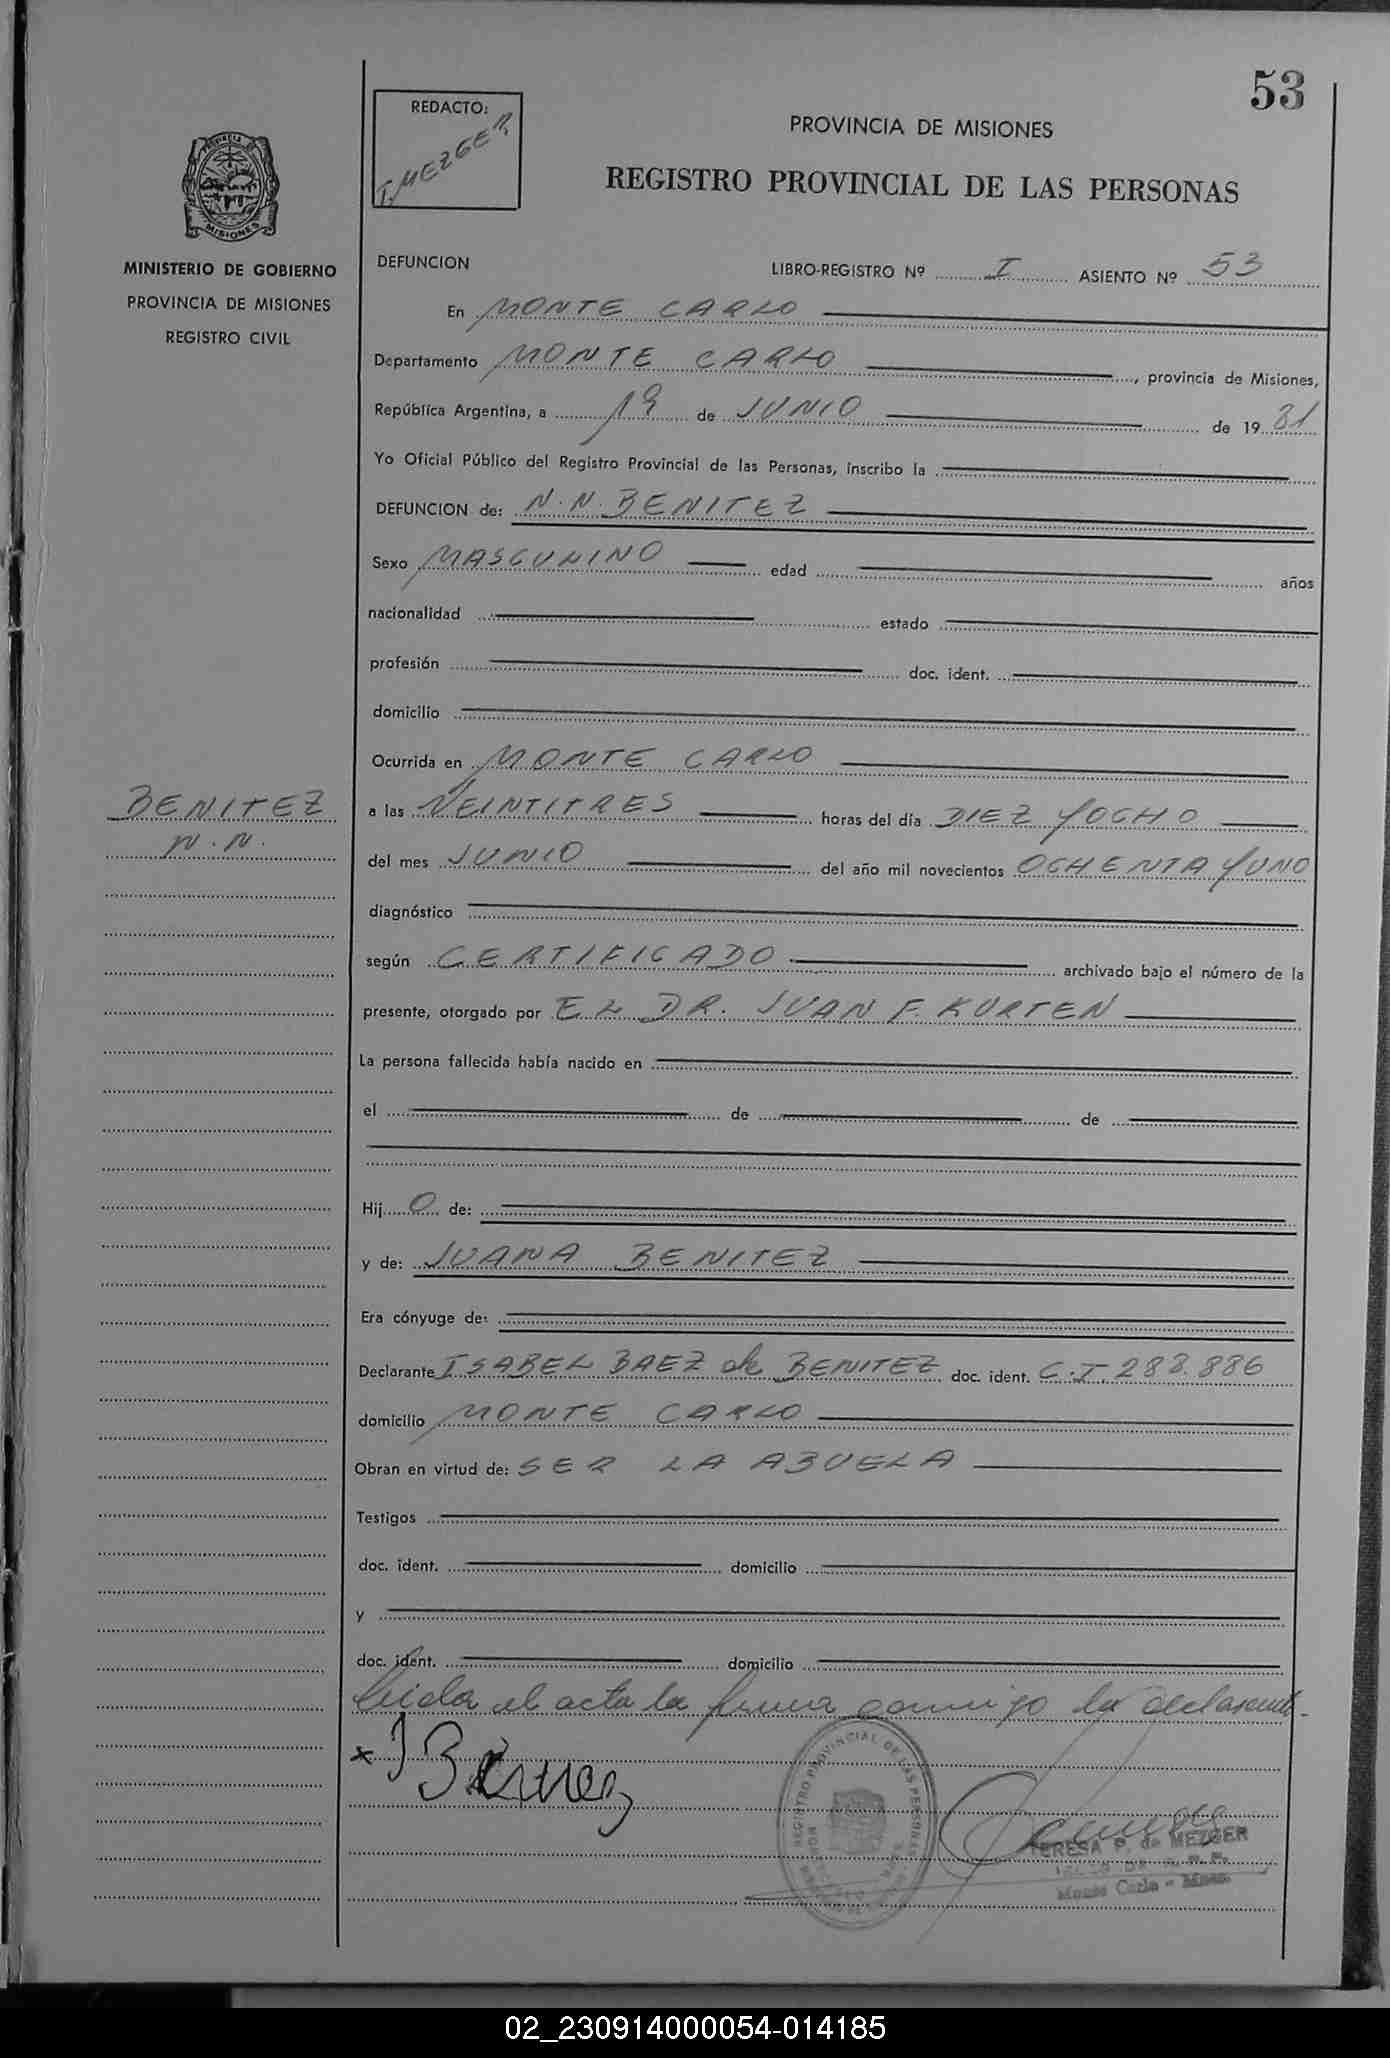 53
REDACTO:
T. MEZGER
PROVINCIA DE MISIONES
REGISTRO PROVINCIAL DE LAS PERSONAS
PROVINCIA DE
MISIONES
MINISTERIO DE GOBIERNO
PROVINCIA DE MISIONES
REGISTRO CIVIL
DEFUNCION LIBRO-REGISTRO Nº I ASIENTO Nº 53
En MONTE CARLO
Departamento MONTE CARLO, provincia de Misiones,
República Argentina, a 19 de JUNIO de 19 81
Yo Oficial Público del Registro Provincial de las Personas, inscribo la
DEFUNCION de: N. N. BENITEZ
Sexo MASCULINO edad años
nacionalidad estado
profesión doc. ident.
domicilio
Ocurrida en MONTE CARLO
BENITEZ
N. N.
a las VEINTITRES horas del día DIEZ Y OCHO
del mes JUNIO del año mil novecientos OCHENTA Y UNO
diagnóstico
según CERTIFICADO archivado bajo el número de la
presente, otorgado por EL DR. JUAN F. KURTEN
La persona fallecida había nacido en
el de de
Hij O de:
y de: JUANA BENITEZ
Era cónyuge de:
Declarante ISABEL BAEZ de BENITEZ doc. ident. C.I. 288.886
domicilio MONTE CARLO
Obran en virtud de: SER LA ABUELA
Testigos
doc. ident. domicilio
y
doc. ident. domicilio
leida el acta la firma conmigo la declarante-
x I Benitez
REGISTRO PROVINCIAL DE LAS PERSONAS
TERESA P. de MEZGER
Monte Carlo - Mnes.
02_230914000054-014185